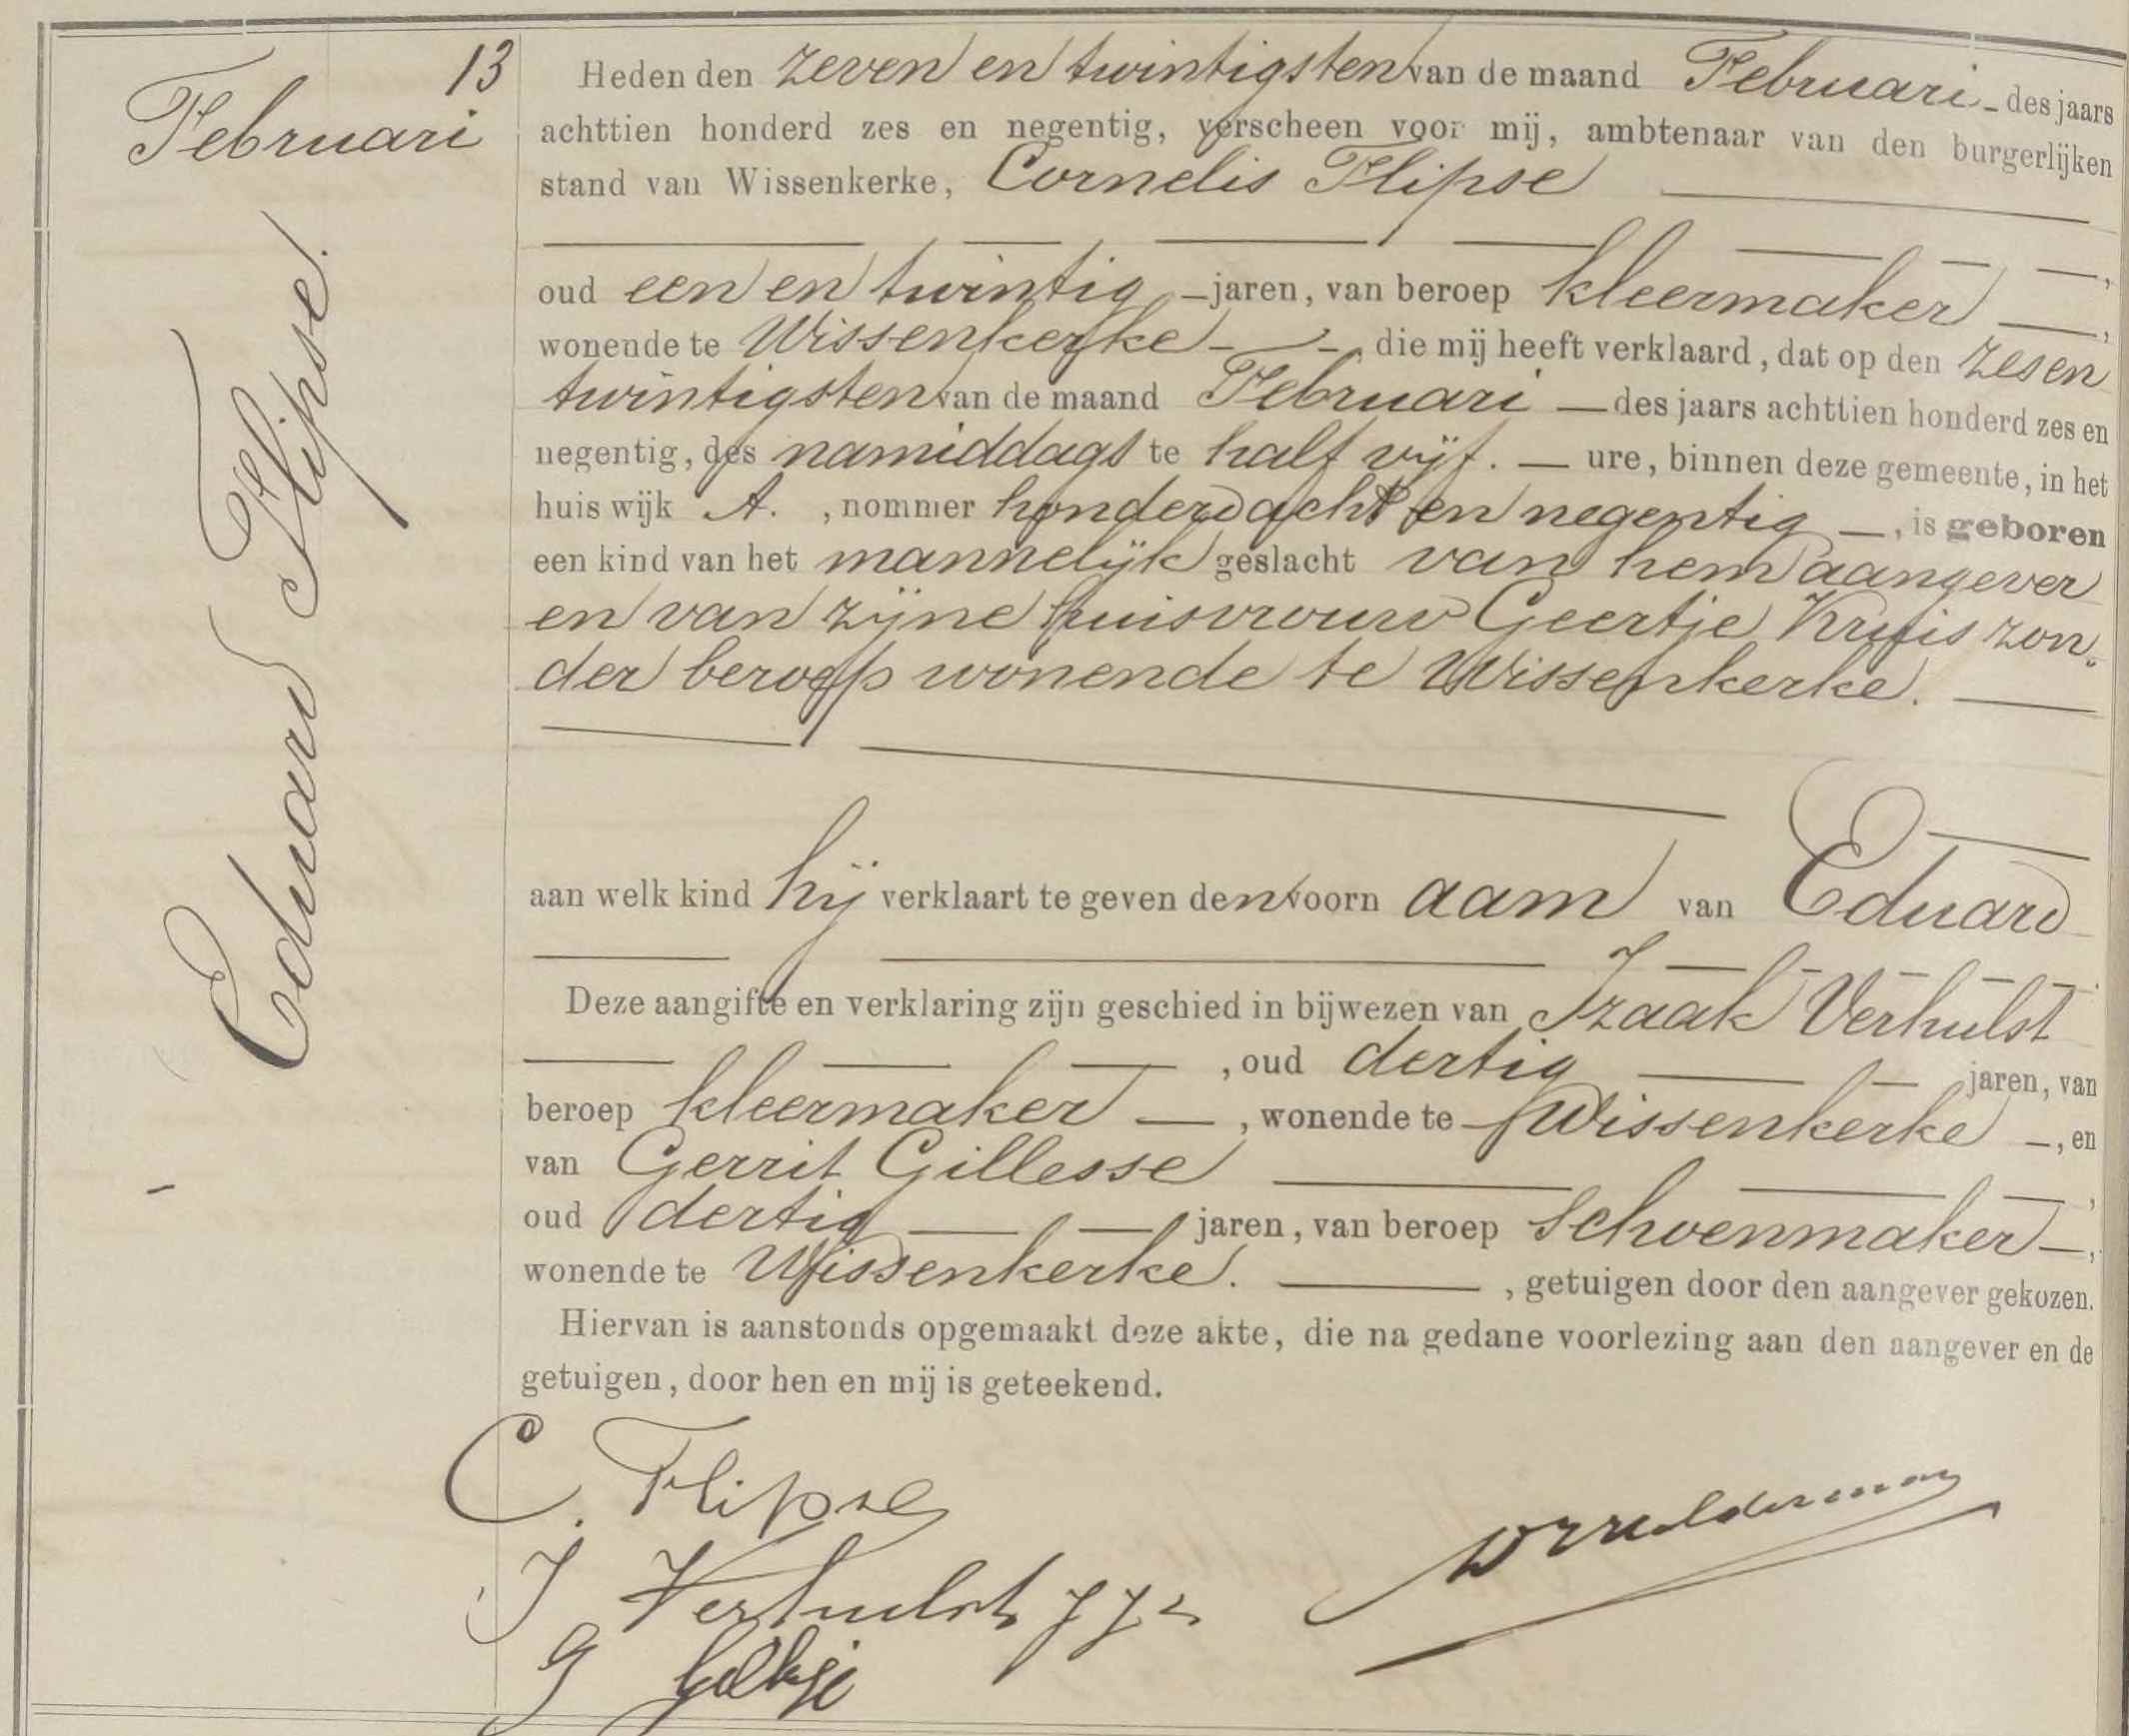 13
Februari
Eduard Flipse.
Heden den zeven en twintigsten van de maand Februari - des jaars
achttien honderd zes en negentig, verscheen voor mij, ambtenaar van den burgerlijken
stand van Wissenkerke, Cornelis Flipse
oud een en twintig - jaren, van beroep kleermaker - ,
wonende te Wissenkerke - - , die mij heeft verklaard, dat op den zes en
twintigsten van de maand Februari - des jaars achttien honderd zes en
negentig, des namiddags te half vijf. - ure, binnen deze gemeente, in het
huis wijk A. , nommer honderd acht en negentig - , is geboren
een kind van het mannelijk geslacht van hem aangever
en van zijne huisvrouw Geertje Kruis zon„
der beroep wonende te Wissenkerke.
aan welk kind hij verklaart te geven den voornaam van Eduard
Deze aangifte en verklaring zijn geschied in bijwezen van Izaak Verhulst
, oud dertig jaren, van
beroep kleermaker - , wonende te - Wissenkerke - , en
van Gerrit Gillesse ,
oud dertig jaren, van beroep schoenmaker - ,
wonende te Wissenkerke. , getuigen door den aangever gekozen.
Hiervan is aanstonds opgemaakt deze akte, die na gedane voorlezing aan den aangever en de
getuigen, door hen en mij is geteekend.
C. Flipse
J Verhulst
G